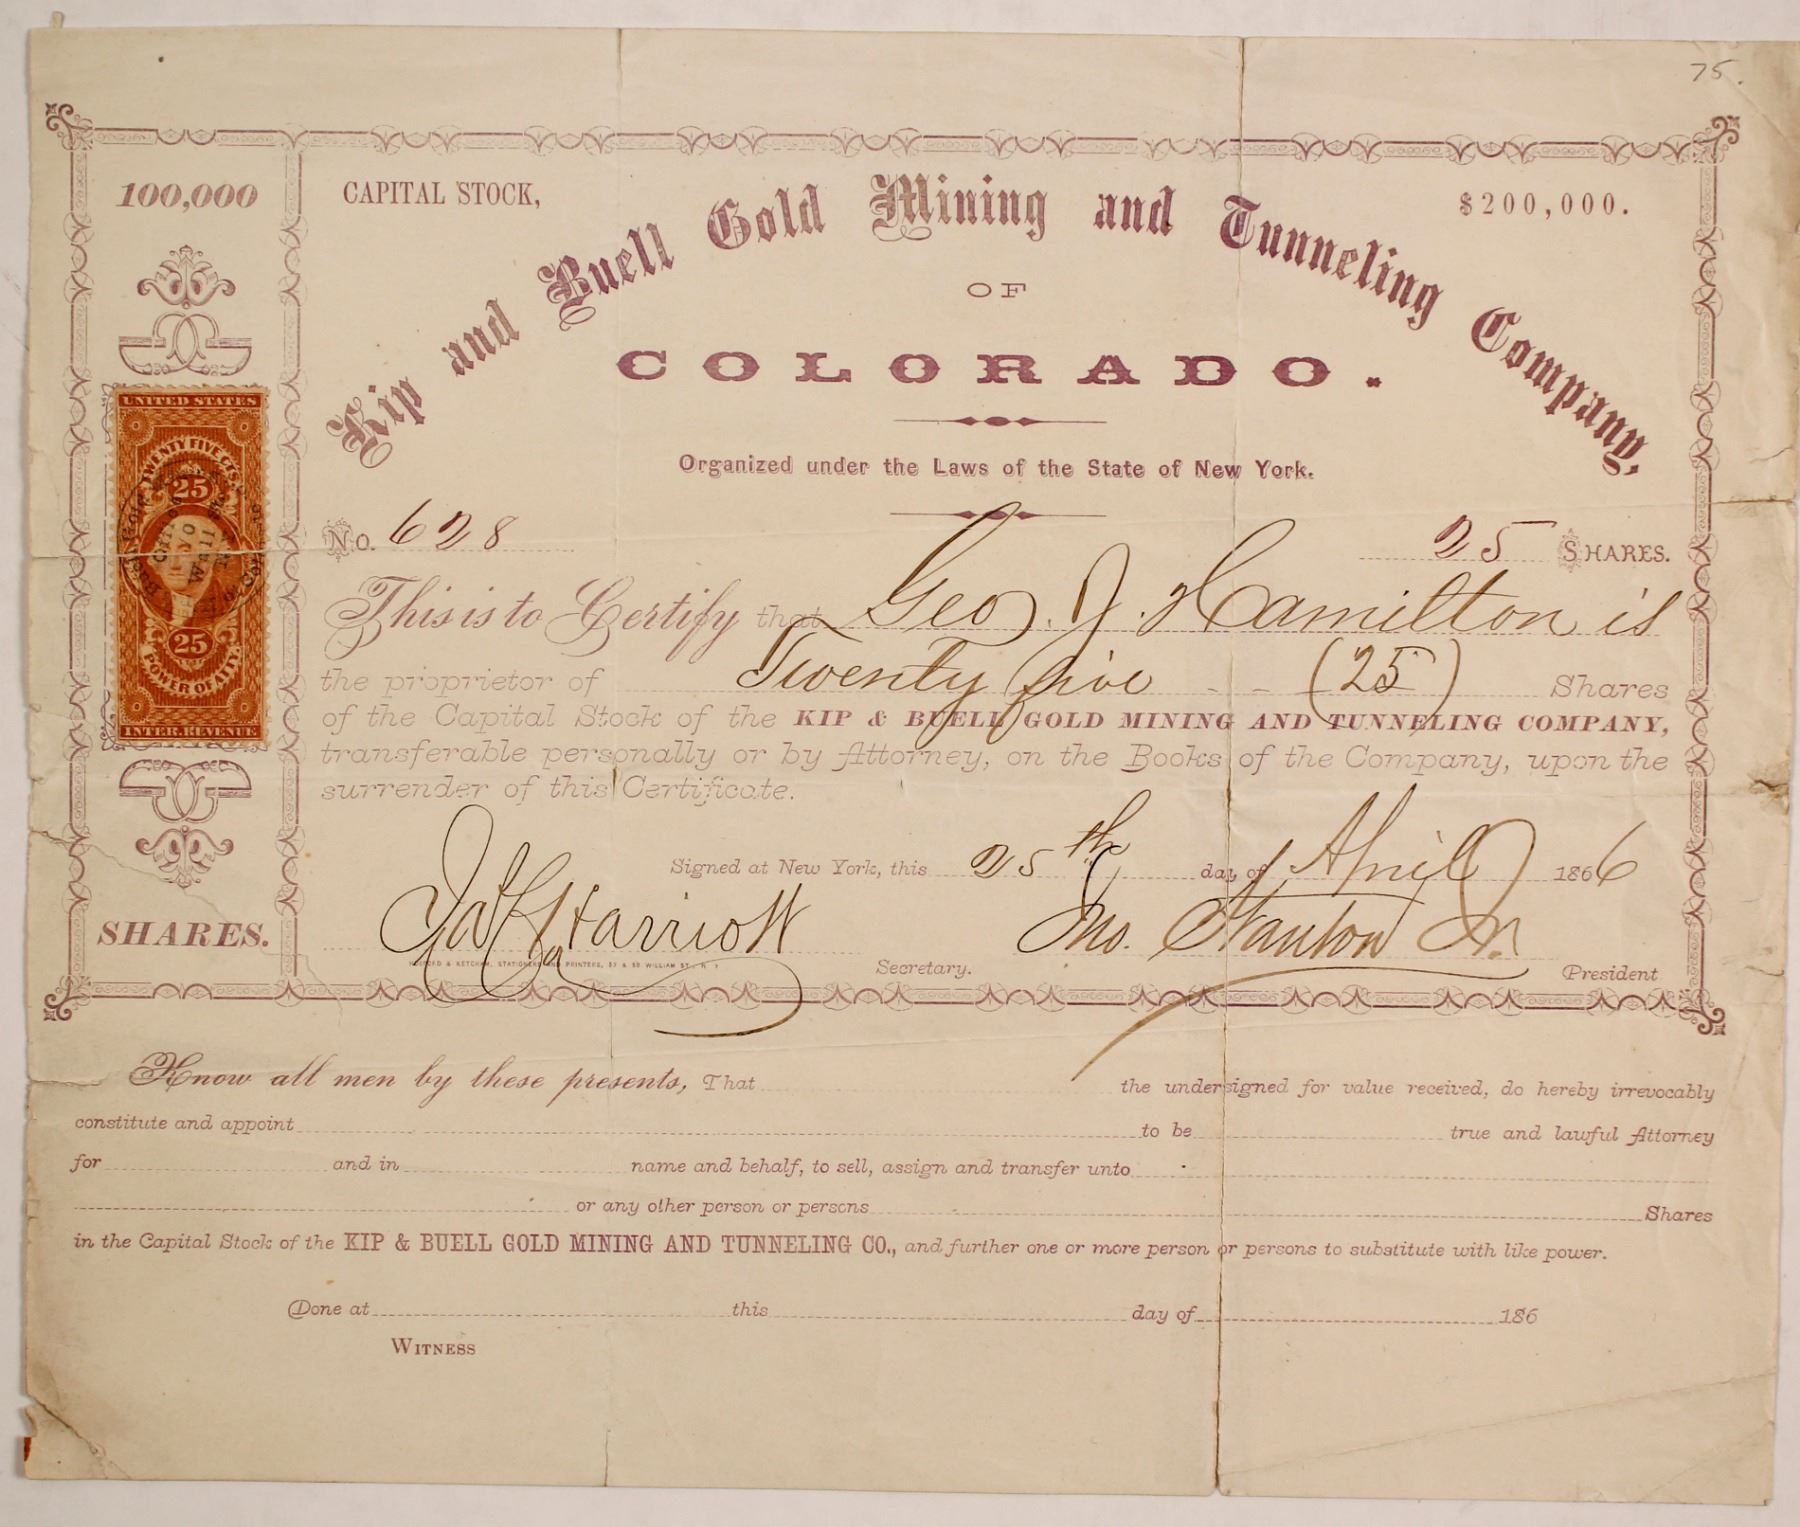 75.
100,000
CAPITAL STOCK,
$200,000.
Kip and Buell Gold Mining and Tunneling Company,
OF
COLORADO.
Organized under the Laws of the State of New York.
No. 628
25 SHARES.
This is to Certify that Geo. J. Hamilton is
the proprietor of Twenty five - - (25) Shares
of the Capital Stock of the KIP & BUELL GOLD MINING AND TUNNELING COMPANY,
transferable personally or by Attorney, on the Books of the Company, upon the
surrender of this Certificate.
Signed at New York, this 25th day of April 1866
Harriott
Jno. Stanton Jr.
& KETCHAM, STATIONERS AND PRINTERS, 57 & 59 WILLIAM ST., N. Y.
Secretary.
President
UNITED STATES
TWENTY FIVE CTS.
25
Wall
25
POWER OF ATT'Y.
INTER. REVENUE
SHARES.
Know all men by these presents, That the undersigned for value received, do hereby irrevocably
constitute and appoint to be true and lawful Attorney
for and in name and behalf, to sell, assign and transfer unto
or any other person or persons Shares
in the Capital Stock of the KIP & BUELL GOLD MINING AND TUNNELING CO., and further one or more person or persons to substitute with like power.
Done at this day of 186
WITNESS